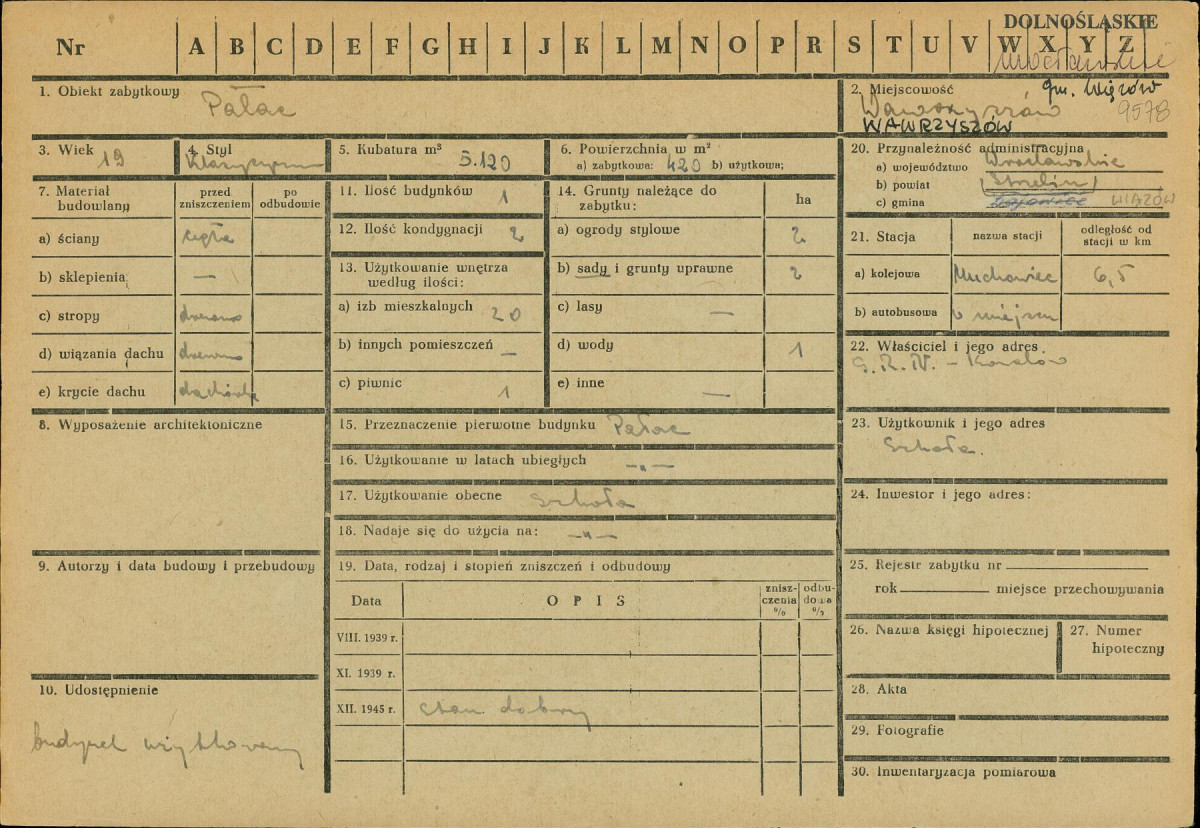 DOLNOŚLĄSKIE
Nr A B C D E F G H I J K L M N O P R S T U V W X Y Z
Wrocławskie
1. Obiekt zabytkowy Pałac
2. Miejscowość gm. Wiązów
Wawrzyszów 9578
WAWRZYSZÓW
3. Wiek 19
4. Styl klasycyzm
5. Kubatura m³ 5.120
6. Powierzchnia w m²
a) zabytkowa: 420 b) użytkowa:
7. Materiał budowlany
przed zniszczeniem
po odbudowie
a) ściany cegła
b) sklepienia —
c) stropy drewno
d) wiązania dachu drewno
e) krycie dachu dachówka
8. Wyposażenie architektoniczne
9. Autorzy i data budowy i przebudowy
10. Udostępnienie
budynek użytkowany
11. Ilość budynków 1
12. Ilość kondygnacji 2
13. Użytkowanie wnętrza
według ilości:
a) izb mieszkalnych 20
b) innych pomieszczeń —
c) piwnic 1
14. Grunty należące do
zabytku: ha
a) ogrody stylowe 2
b) sady i grunty uprawne 2
c) lasy —
d) wody 1
e) inne —
15. Przeznaczenie pierwotne budynku Pałac
16. Użytkowanie w latach ubiegłych —„—
17. Użytkowanie obecne szkoła
18. Nadaje się do użycia na: —„—
19. Data, rodzaj i stopień zniszczeń i odbudowy
Data OPIS znisz-
czenia
%
odbu-
dowa
%
VIII. 1939 r.
XI. 1939 r.
XII. 1945 r. stan dobry
20. Przynależność administracyjna
a) województwo Wrocławskie
b) powiat (Strzelin)
c) gmina WIĄZÓW
21. Stacja nazwa stacji odległość od
stacji w km
a) kolejowa 6,5
b) autobusowa w miejscu
22. Właściciel i jego adres
G.R.N. –
23. Użytkownik i jego adres
Szkoła.
24. Inwestor i jego adres:
25. Rejestr zabytku nr
rok miejsce przechowywania
26. Nazwa księgi hipotecznej
27. Numer
hipoteczny
28. Akta
29. Fotografie
30. Inwentaryzacja pomiarowa